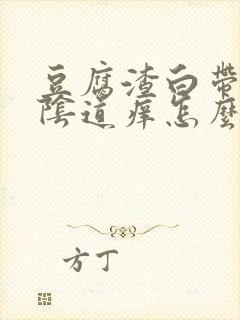 豆腐渣白帶
陰道痒怎麼
方丁